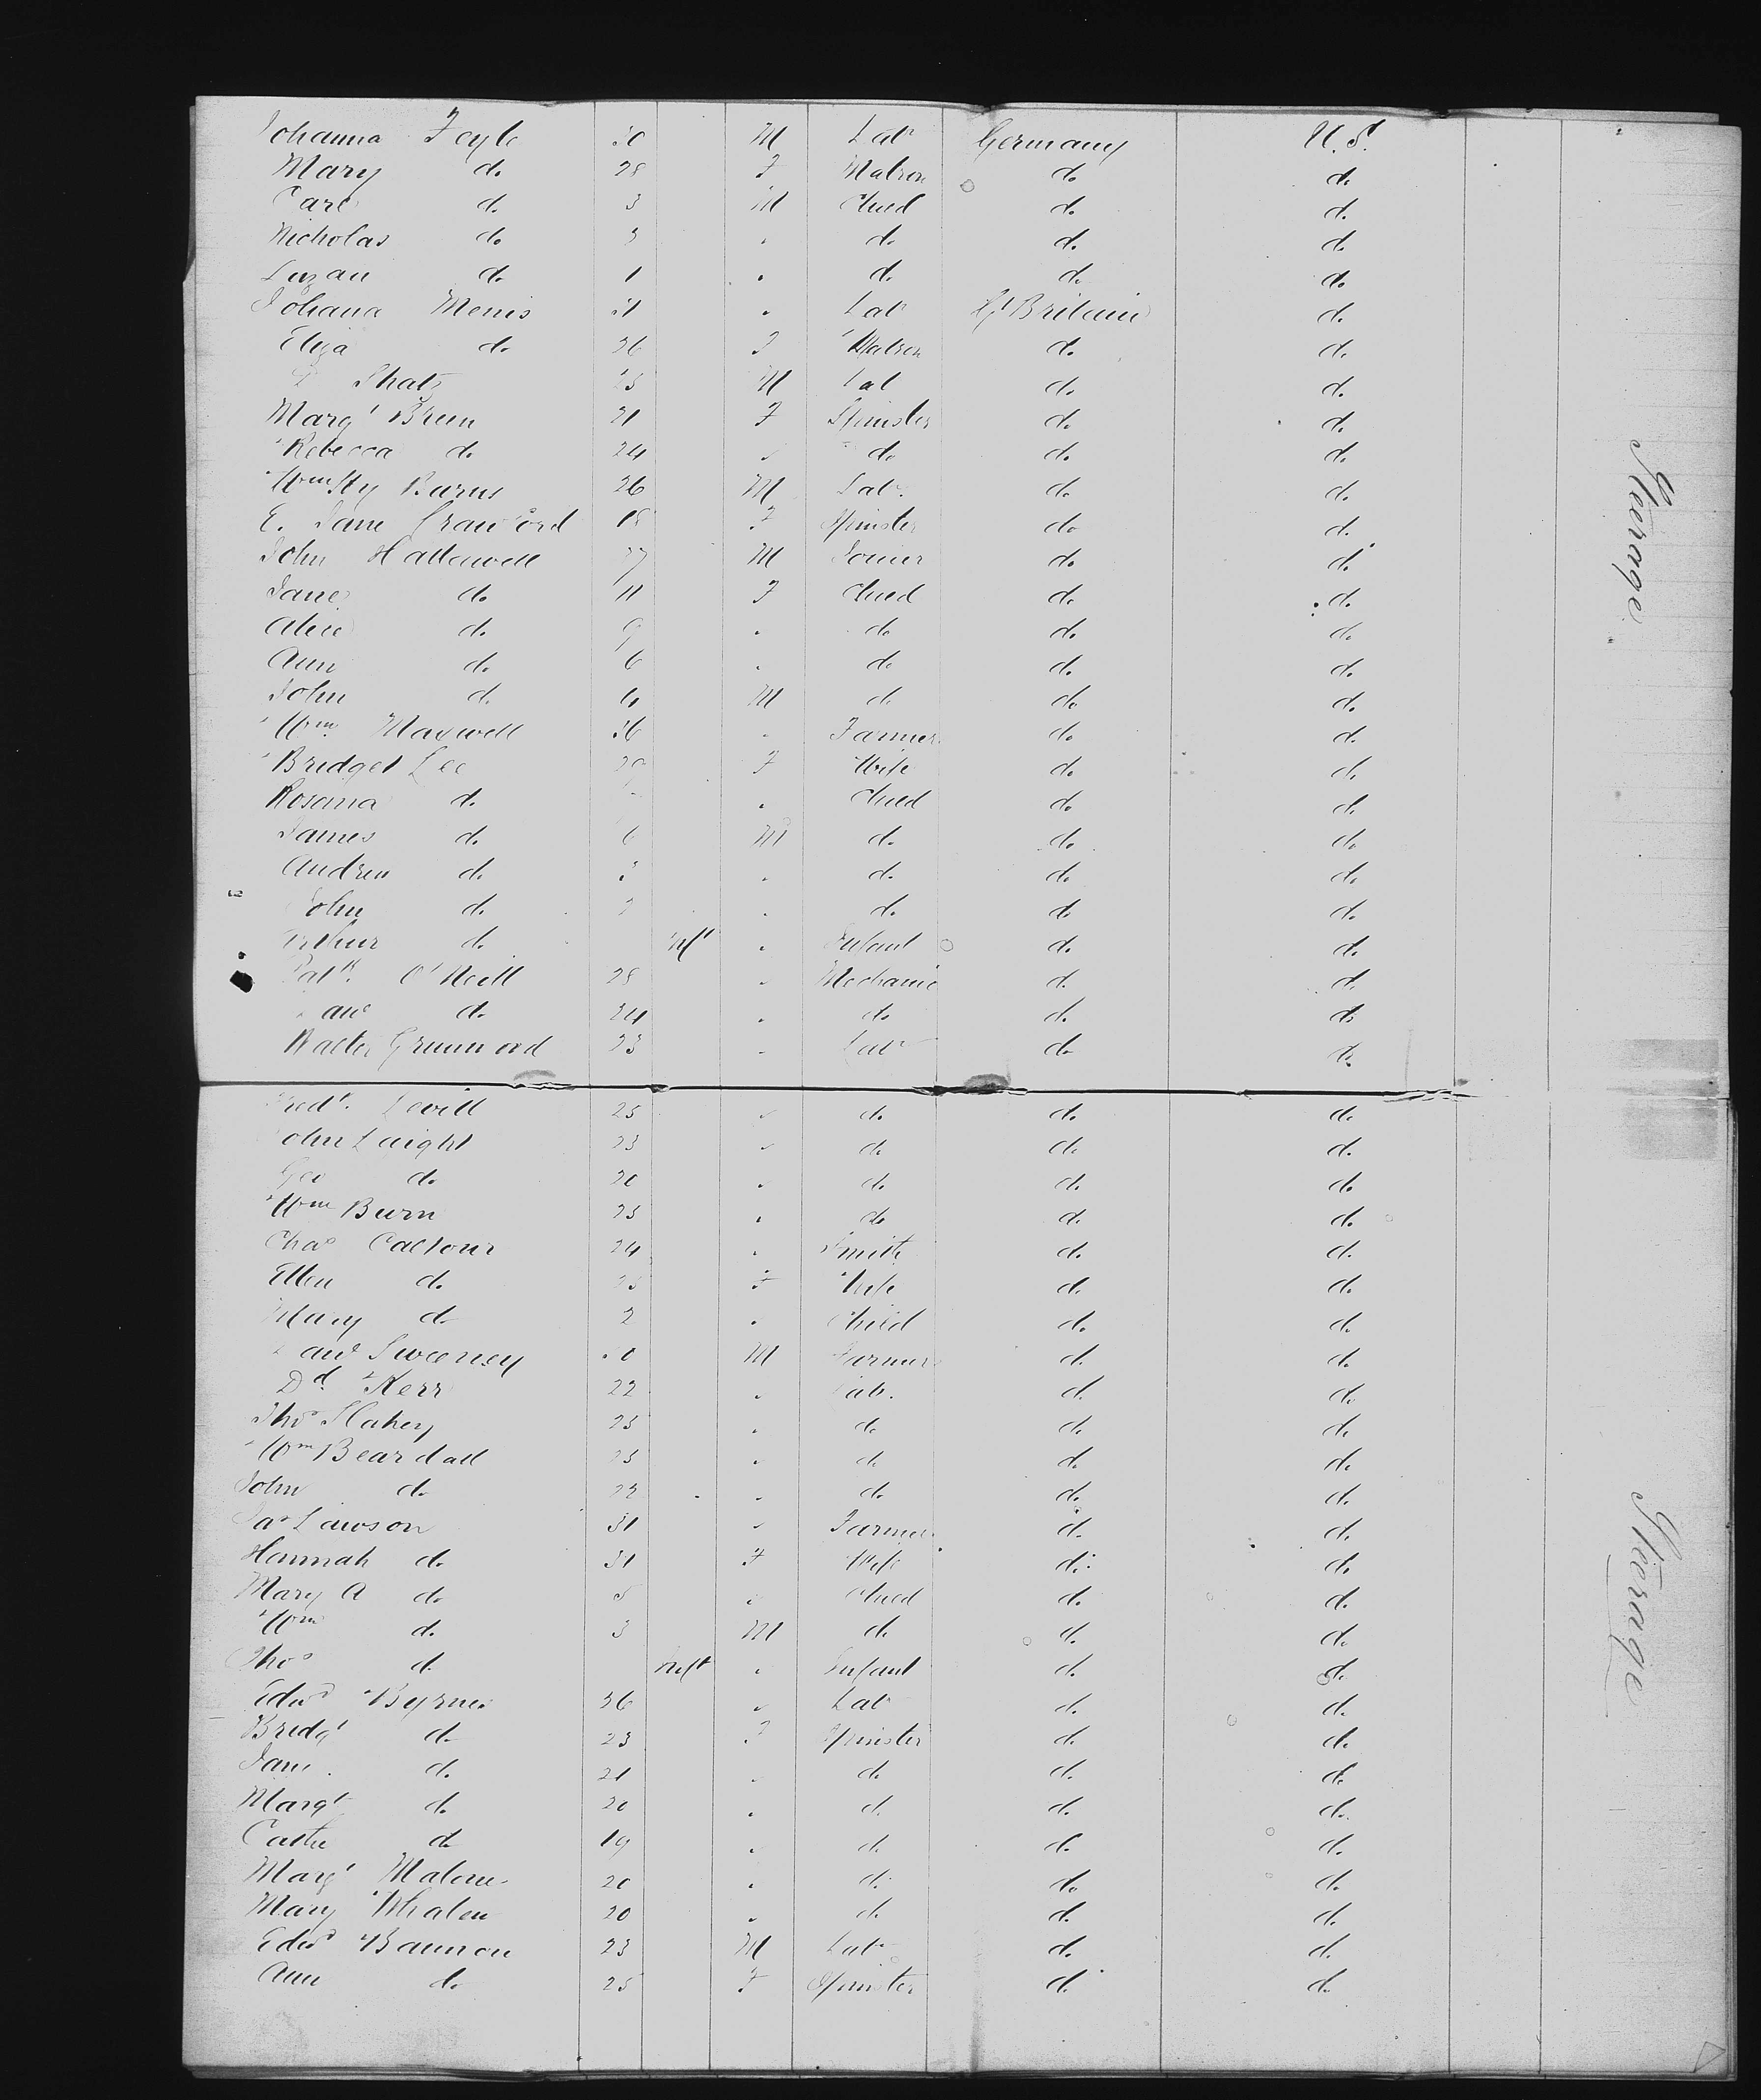 Johanna Feyle 30 M Lab Germany U.S.
Mary do 28 F Matron do do
Carl do 3 M Child do do
Nicholas do 3 " do do do
do 1 " do do do
Johana Menis 31 " Lab Gt Britain do
Eliza do 26 F Matron do do
Shatz M Lab do do
Margt Breen 21 F Spinster do do
Rebecca do 24 " do do do
Wm Hy Burns 26 M Lab. do do
E. Jane Crawford 18 F Spinster do do
John Hallewell 37 M Joiner do do
Jane do 11 F Child do do
Alice do 9 " do do do
Ann do 6 " do do do
John do M do do do
Wm Maxwell 36 " Farmer do do
Bridget Lee F Wife do do
Rosanna do " Child do do
James do 6 M do do do
Andrew do " do do do
John do " do do do
Arthur do Inft " Infant do do
Patk. O'Neill 28 " Mechanic do do
do 24 " do do do
Walter 23 " Lab do do
Steerage
Fredk. Levill 25 " do do do
John Laight 23 " do do do
Geo do 20 " do do do
Wm Burn 23 " do do do
Chas 24 " Smith do do
Ellen do F Wife do do
Mary do 2 " Child do do
Sweeney M Farmer do do
Dd. Kerr 22 " Lab. do do
Thos Slakey 23 " do do do
Wm Beardall 23 " do do do
John do 22 " do do do
Jas Lawson 31 " Farmer do do
Hannah do 31 F Wife do do
Mary A do 5 " Child do do
Wm do 3 M do do do
Thos do Inft " Infant do do
Edwd Byrnes 36 " Lab do do
Bridgt do 23 F Spinster do do
Jane do 21 " do do do
Margt do 20 " do do do
Cathe do 19 " do do do
Margt Malone 20 " do do do
Mary Whalen 20 " do do do
Edwd Bannon 23 M Lab do do
Ann do 25 F Spinster do do
Steerage